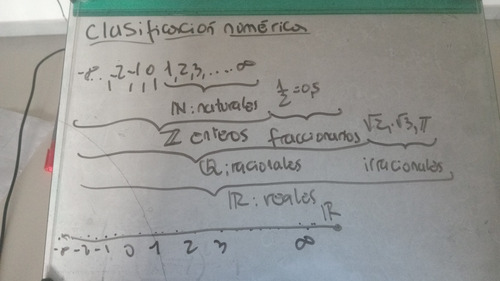 Clasificación numérica
-∞..,-2,-1,0,1,2,3,....∞
ℕ:naturales 1/2=0,5
ℤ enteros fraccionarios √2,√3,π
ℚ:racionales irracionales
ℝ:reales
ℝ
-∞ -2 -1 0 1 2 3 ∞